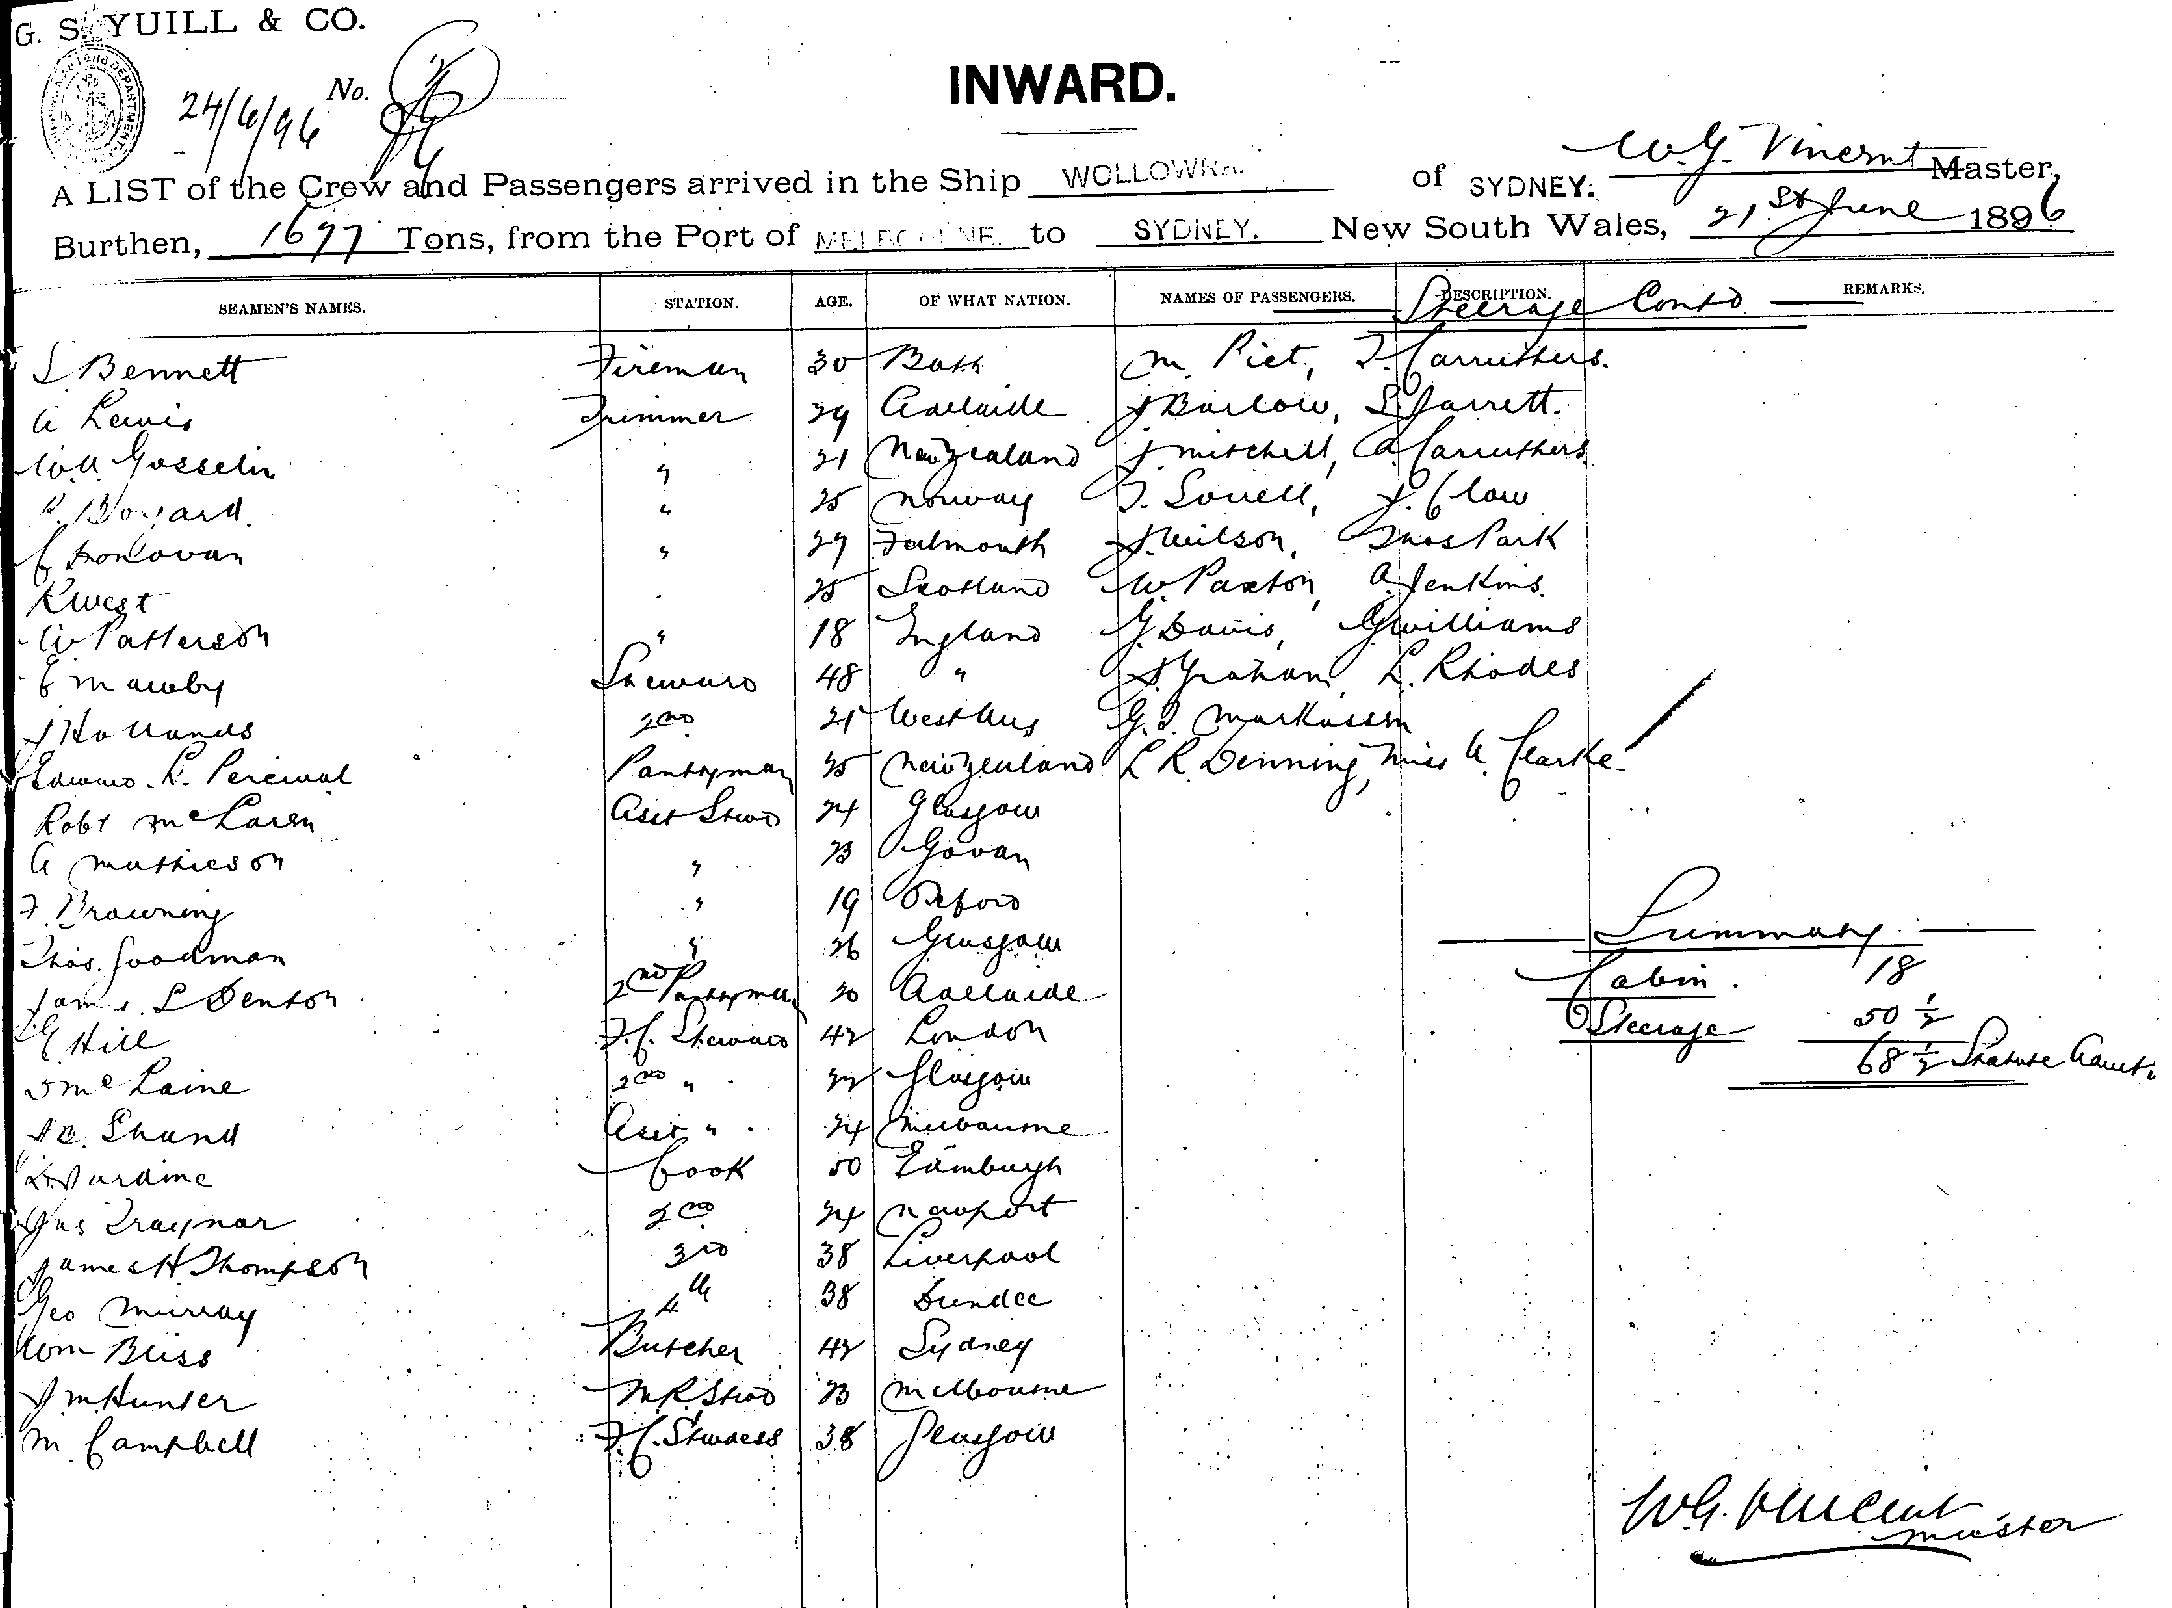 G. S. YUILL & CO.
24/6/96 No.
INWARD.
A LIST of the Crew and Passengers arrived in the Ship WOLLOWRA. of SYDNEY. W.G. Vincent Master,
Burthen, 1697 Tons, from the Port of MELBOURNE. to SYDNEY. New South Wales, 21st June 1896
SEAMEN'S NAMES. STATION. AGE. OF WHAT NATION. NAMES OF PASSENGERS. DESCRIPTION. REMARKS.
Steerage Contd
S. Bennett Fireman 30 Bath M. Piet, T. Carruthers.
A Lewis Trimmer 29 Adelaide J Barlow, S. Jarrett.
W.A. Gosselin " 21 New Zealand J. Mitchell, A. Carruthers
Boyard. " 25 Norway T. Sorrell, J. Claw
C Donlovan " 29 Falmouth J. Wilson, Thos Park
R West 25 Scotland W. Paxton, A. Jenkins.
W Patterson " 18 England G. Davis, G Williams
E Mawby Steward 48 " S. Graham, L. Rhodes
J Hollands 2nd 21 West Aus G. J. Markussen
Edward L. Percival Pantryman 25 New Zealand L R. Denning, Miss A. Clarke
Robt McLaren Asst Stwd 24 Glasgow
A Mathieson " 23 Govan
F. Browning " 19 Oxford
Thos. Goodman " 26 Glasgow
James L Denton 2nd Pantryman 20 Adelaide
Hill F.C. Steward 42 London
McLaine 2nd " 22 Glasgow
Shand Asst " 24 Melbourne
Jardine Cook 50 Edinburgh
Jas Traynor 2nd 24 Newport
James H Thompson 3rd 38 Liverpool
Geo Murray 4th 38 Dundee
Wm Bliss Butcher 42 Sydney
J. M. Hunter M.R. Stwd 23 Melbourne
M. Campbell F.C. Stwdess 38 Glasgow
Summary
Cabin. 18
Steerage 50 1/2
68 1/2 Statute
W.G. Vincent
Master